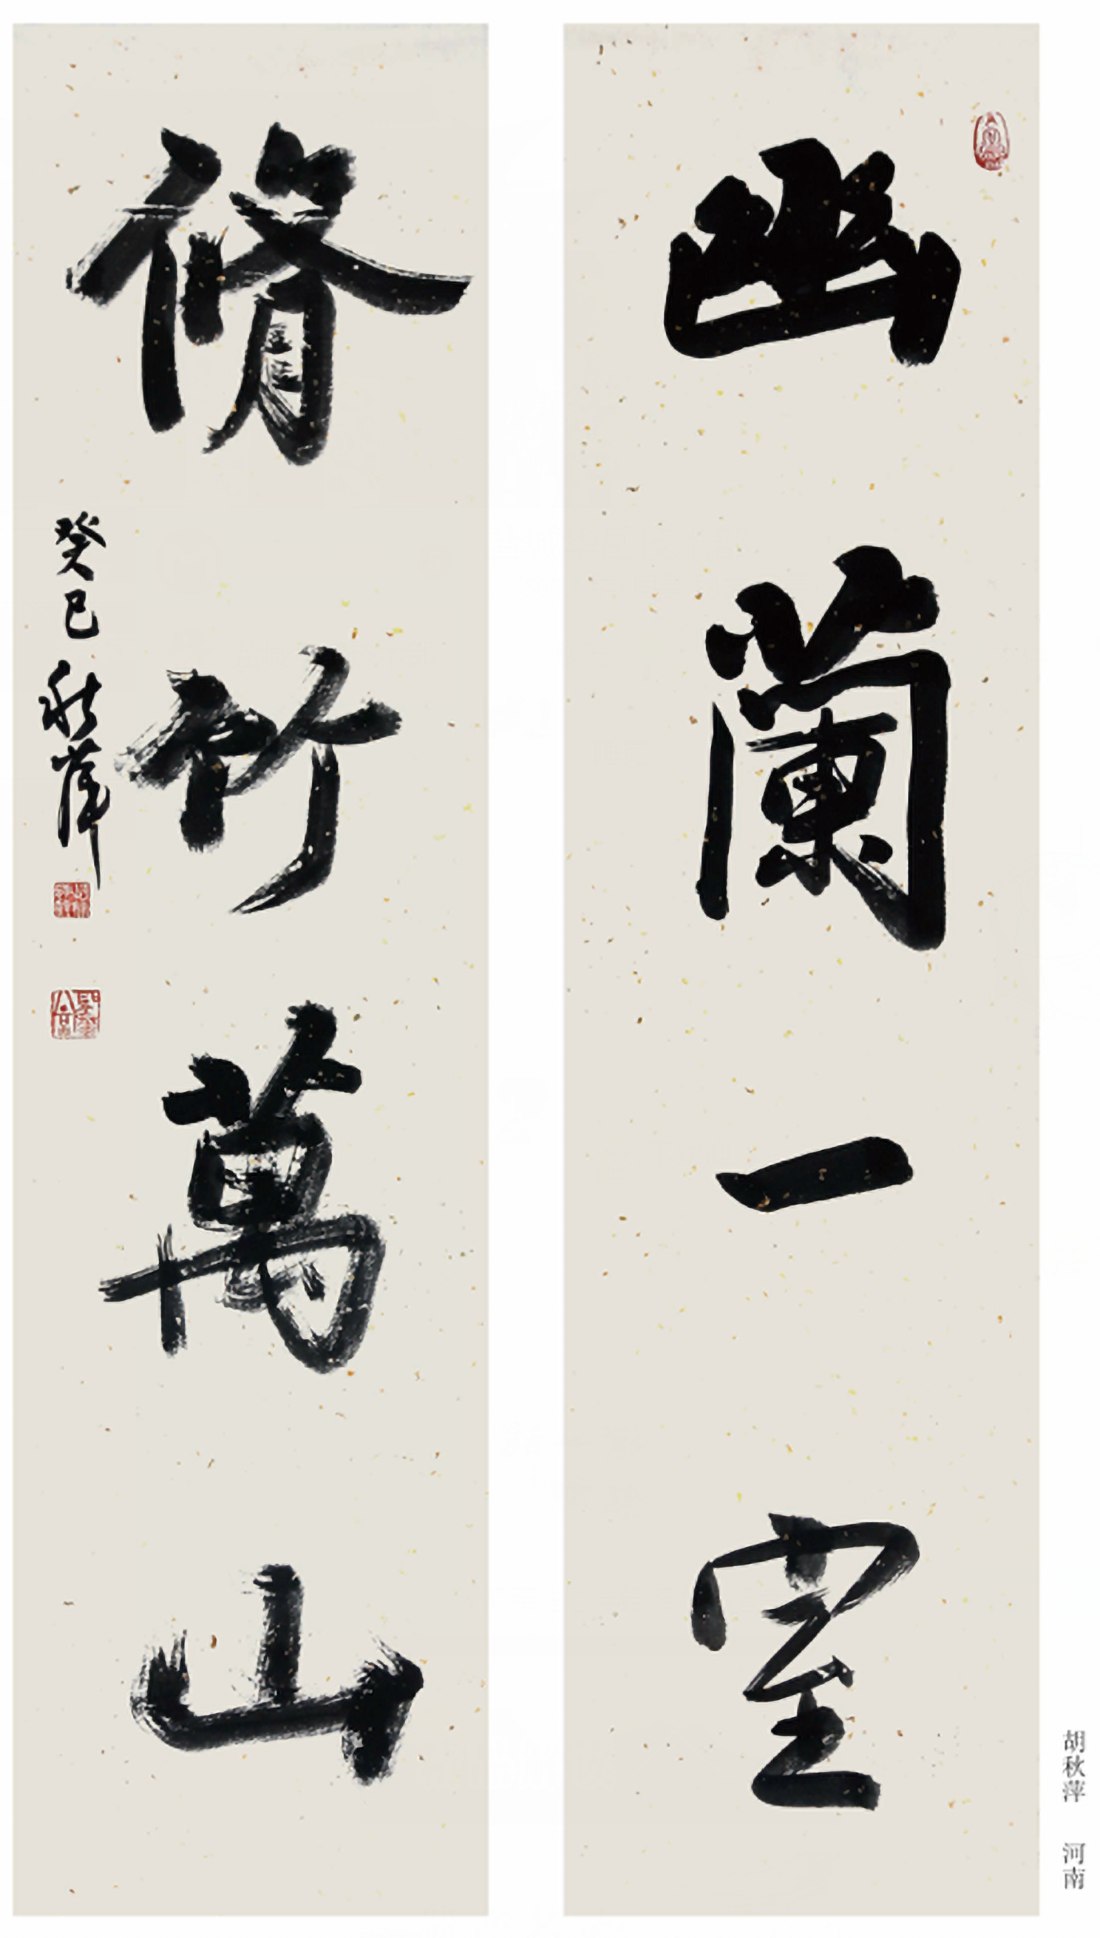 幽蘭一室
脩竹萬山
癸巳秋萍
胡秋萍 河南